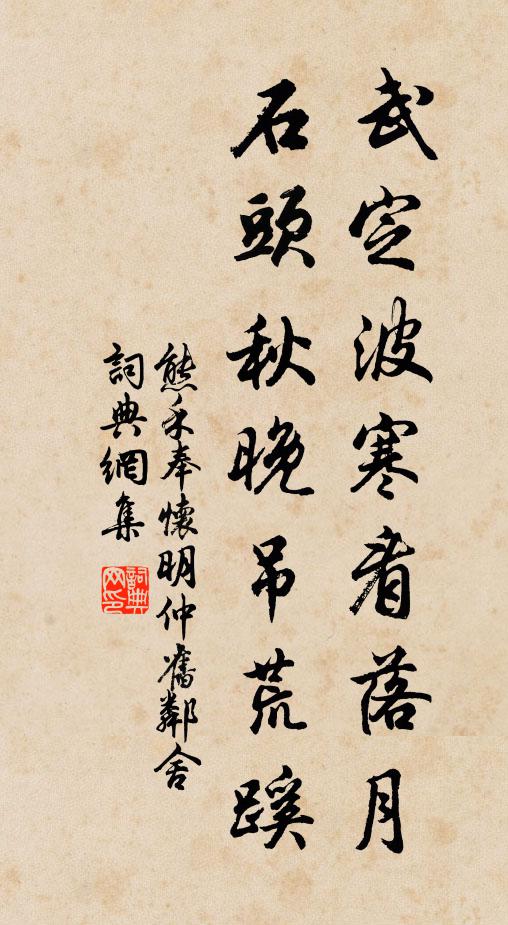 武定波寒看落月
石頭秋晚吊荒蹊
熊禾奉懷明仲舊鄰舍
詞典網集
詞典網印